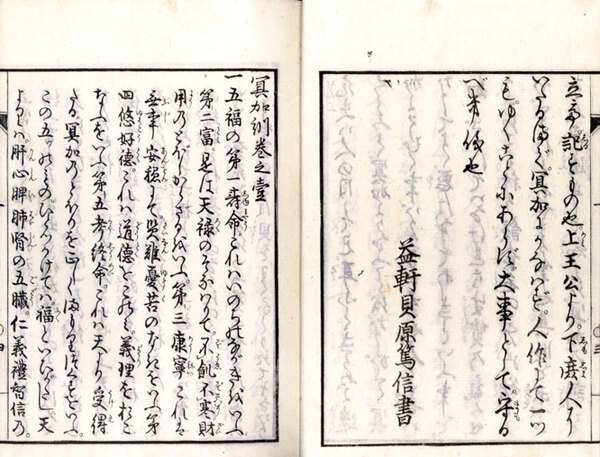 立帝記すもの也上王公より。下庶人に
いたるまで。冥加にかなはざれば。人作として一ツ
もゆくことにあらず。大事として。守る
べき儀也
益軒貝原篤信書
冥加訓巻之壹
一五福の第一壽命これハいのちのながきをいふ
第二富。是は天禄のそなハりて。不飢不寒財
用のとぼしからざるをいふ。第三康寧これは
無事安穏にて。災難憂苦のなきをいふ第
四悠好徳。これハ道徳をこのミ。義理をおこ
なふをいふ第五考終命これハ天より受得
たる冥加のとほりを正しくまもり
この五ツのものひとつかけてハ福といひがたし。天
よりハ肝心脾肺腎の五臓。仁義禮智信乃。